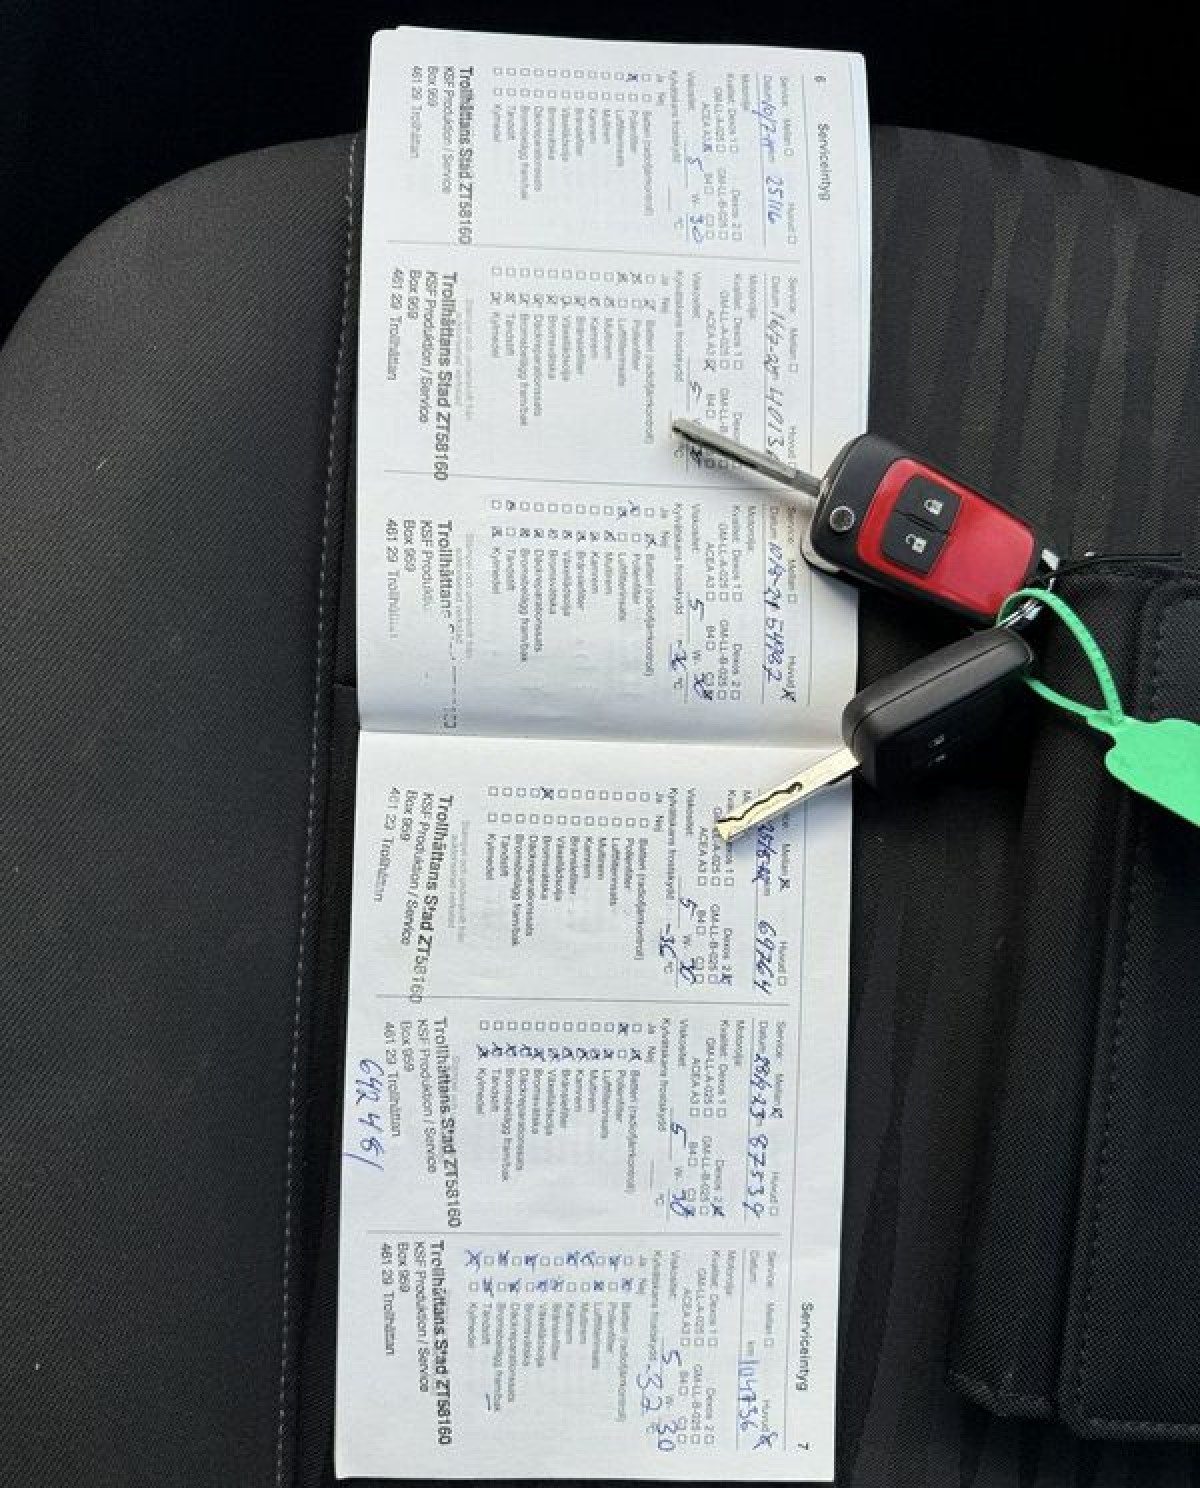 6
Serviceintyg
Service: Mellan Huvud
Datum 10/7-19 km 25116
Motorolja:
Kvalitet: Dexos 1 Dexos 2
GM-LL-A-025 GM-LL-B-025
ACEA A3 B4
Viskositet 5 W- 30
Kylvätskans fryspunkt °C
Ja Nej
Batteri (radiofjärrkontroll)
Pollenfilter
Luftfilterinsats
Multirem
Kamrem
Bränslefilter
Växellådsolja
Bromsvätska
Däckreparationssats
Bromsbelägg fram/bak
Tändstift
Kylmedel
Trollhättans Stad ZT58160
KSF Produktion / Service
Box 969
461 29 Trollhättan
Service: Mellan Huvud
Datum
Motorolja:
Kvalitet: Dexos 1
GM-LL-A-025 GM-LL-B
ACEA A3 B4
Viskositet 5
Ja Nej
Batteri (radiofjärrkontroll)
Pollenfilter
Luftfilterinsats
Multirem
Kamrem
Bränslefilter
Växellådsolja
Bromsvätska
Däckreparationssats
Bromsbelägg fram/bak
Tändstift
Kylmedel
Trollhättans Stad ZT58160
KSF Produktion / Service
Box 969
461 29 Trollhättan
Service: Mellan Huvud
Datum
Motorolja:
Kvalitet: Dexos 1 Dexos 2
GM-LL-A-025 GM-LL-B-025
ACEA A3 B4 C3
Viskositet 5 W- 30
-36 °C
Ja Nej
Batteri (radiofjärrkontroll)
Pollenfilter
Luftfilterinsats
Multirem
Kamrem
Bränslefilter
Växellådsolja
Bromsvätska
Däckreparationssats
Bromsbelägg fram/bak
Tändstift
Kylmedel
Trollhättans
KSF Produk
Box 969
461 29 Trollhättan
Mellan Huvud
69764
Dexos 2
GM-LL-B-025
ACEA A3 B4 C3
Viskositet 5 W- 30
-36 °C
Ja Nej
Batteri (radiofjärrkontroll)
Pollenfilter
Luftfilterinsats
Multirem
Kamrem
Bränslefilter
Växellådsolja
Bromsvätska
Däckreparationssats
Bromsbelägg fram/bak
Tändstift
Kylmedel
Trollhättans Stad ZT58160
KSF Produktion / Service
Box 969
461 29 Trollhättan
Service: Mellan Huvud
Datum 87539
Motorolja:
Kvalitet: Dexos 1 Dexos 2
GM-LL-A-025 GM-LL-B-025
ACEA A3 B4 C3
Viskositet 5 W- 30
°C
Ja Nej
Batteri (radiofjärrkontroll)
Pollenfilter
Luftfilterinsats
Multirem
Kamrem
Bränslefilter
Växellådsolja
Bromsvätska
Däckreparationssats
Bromsbelägg fram/bak
Tändstift
Kylmedel
Trollhättans Stad ZT58160
KSF Produktion / Service
Box 969
461 29 Trollhättan
Serviceintyg
7
Service: Mellan Huvud
Datum km 104736
Motorolja:
Kvalitet: Dexos 1 Dexos 2
GM-LL-A-025 GM-LL-B-025
ACEA A3 B4 C3
Viskositet 5 W- 30
-32 °C
Ja Nej
Batteri (radiofjärrkontroll)
Pollenfilter
Luftfilterinsats
Multirem
Kamrem
Bränslefilter
Växellådsolja
Bromsvätska
Däckreparationssats
Bromsbelägg fram/bak
Tändstift
Kylmedel
Trollhättans Stad ZT58160
KSF Produktion / Service
Box 969
461 29 Trollhättan